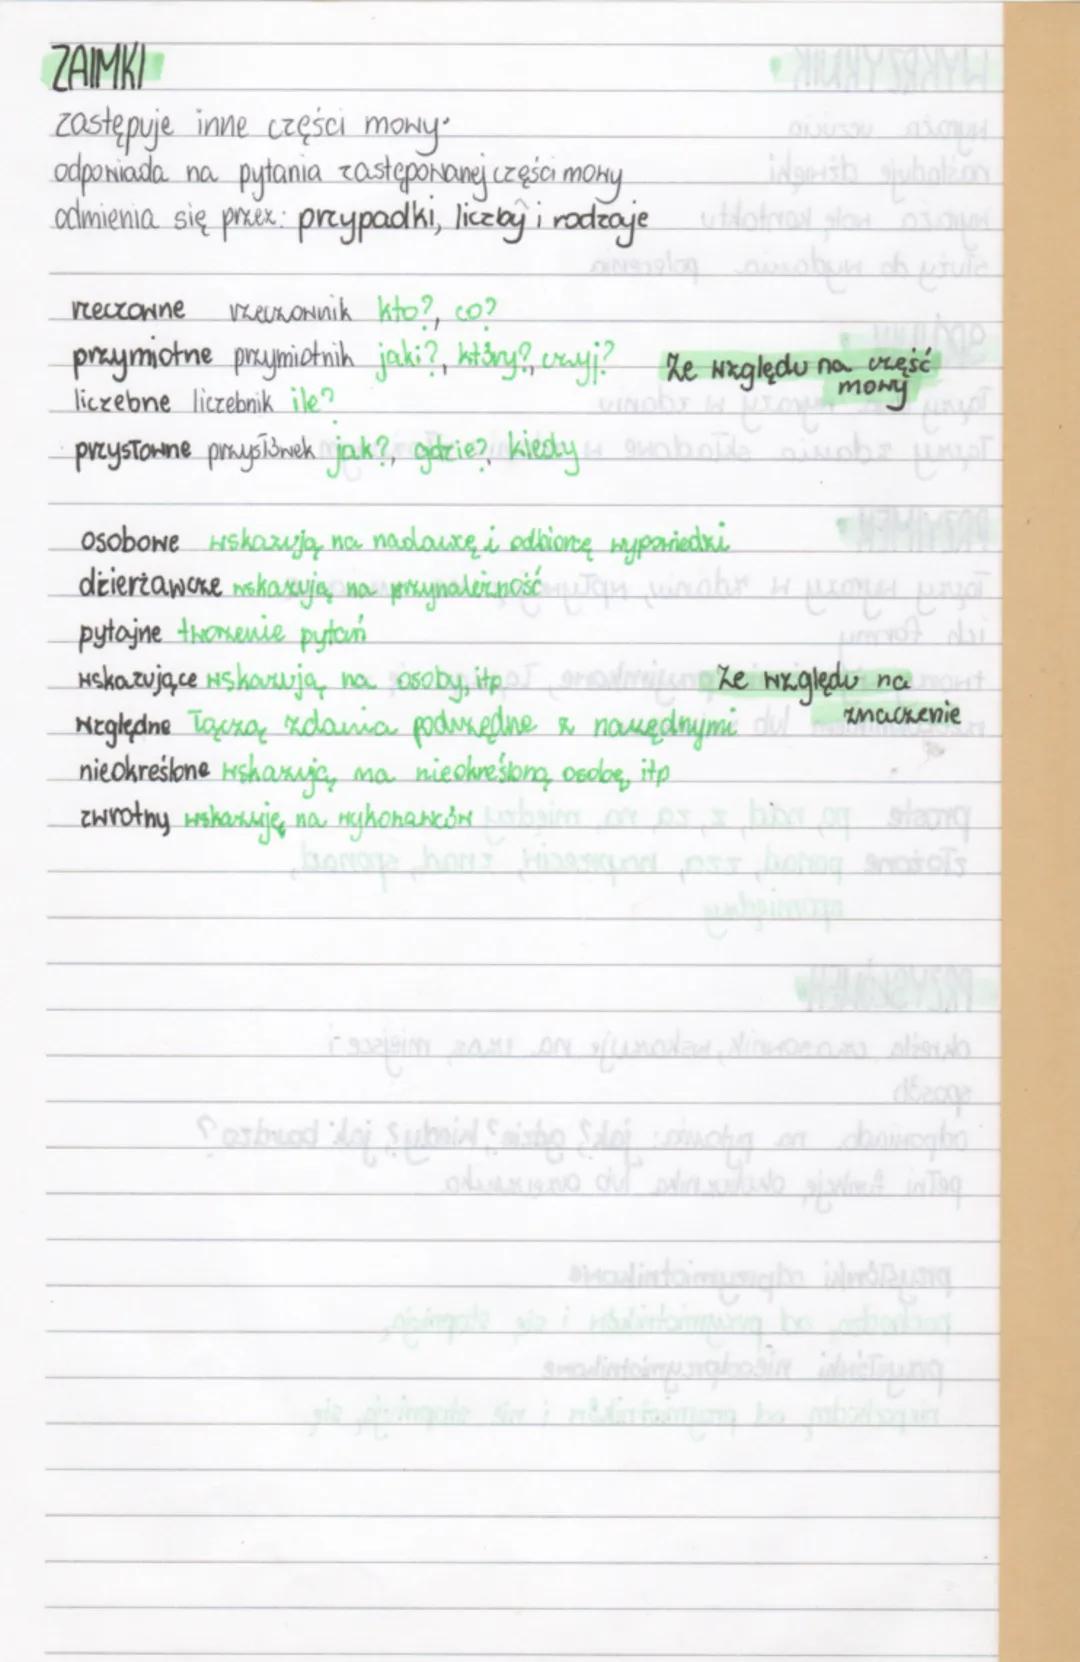 ZAIMKI
zastępuje inne części mowy
odpowiada na pytania zastęponanej części mowy
odmienia się przez: przypadki, liczby i rodzaje
rzeczowne rzeczownik kto?, co?
przymiotne przymiotnik jaki?, który?, czyj?
Ze względu na część
mowy
liczebne liczebnik ile?
przysłowne przysłówek jak?, gdzie?, kiedy
osobowe wskazują na nadawcę i odbiorcę wypowiedzi
dzierżawcze wskazują na przynależność
pytajne tworzenie pytań
wskazujące wskazują na osoby, itp
Ze względu na
znaczenie
względne łączą zdania podrzędne z narzędnymi
nieokreślone wskazują na nieokreśloną osobę, itp
zwrotny wskazuję na wykonawców